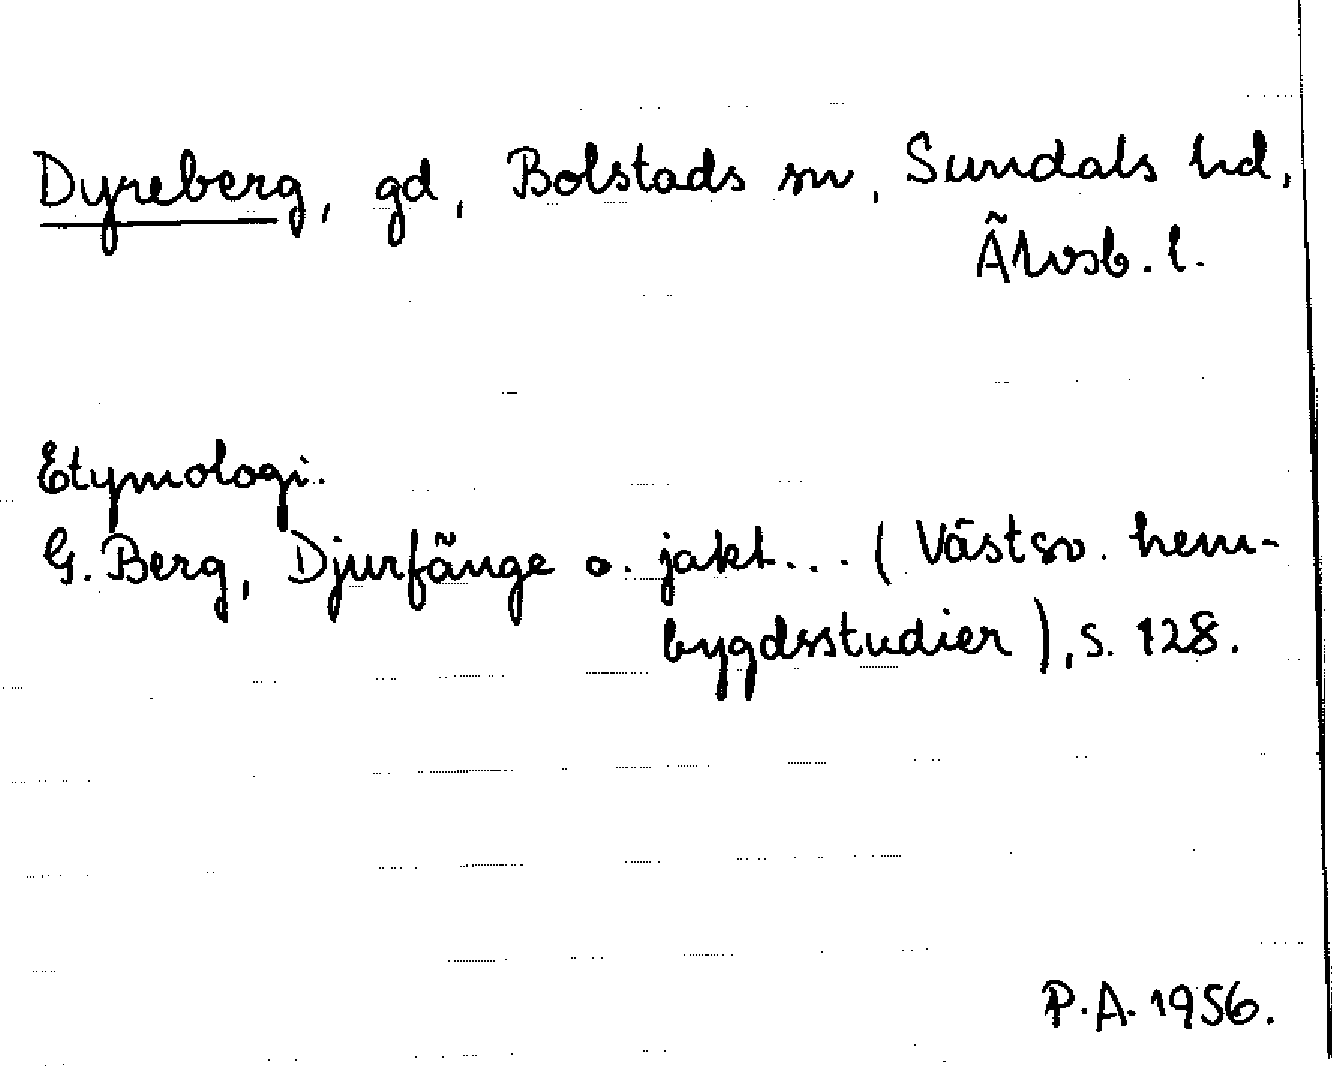 Dyreberg, gd, Bolstads sn, Sundals hd,
Älvsb. l.
Etymologi.
G. Berg, Djurfänge o. jakt... (Västsv. hem-
bygdsstudier), s. 128.
P.A. 1956.